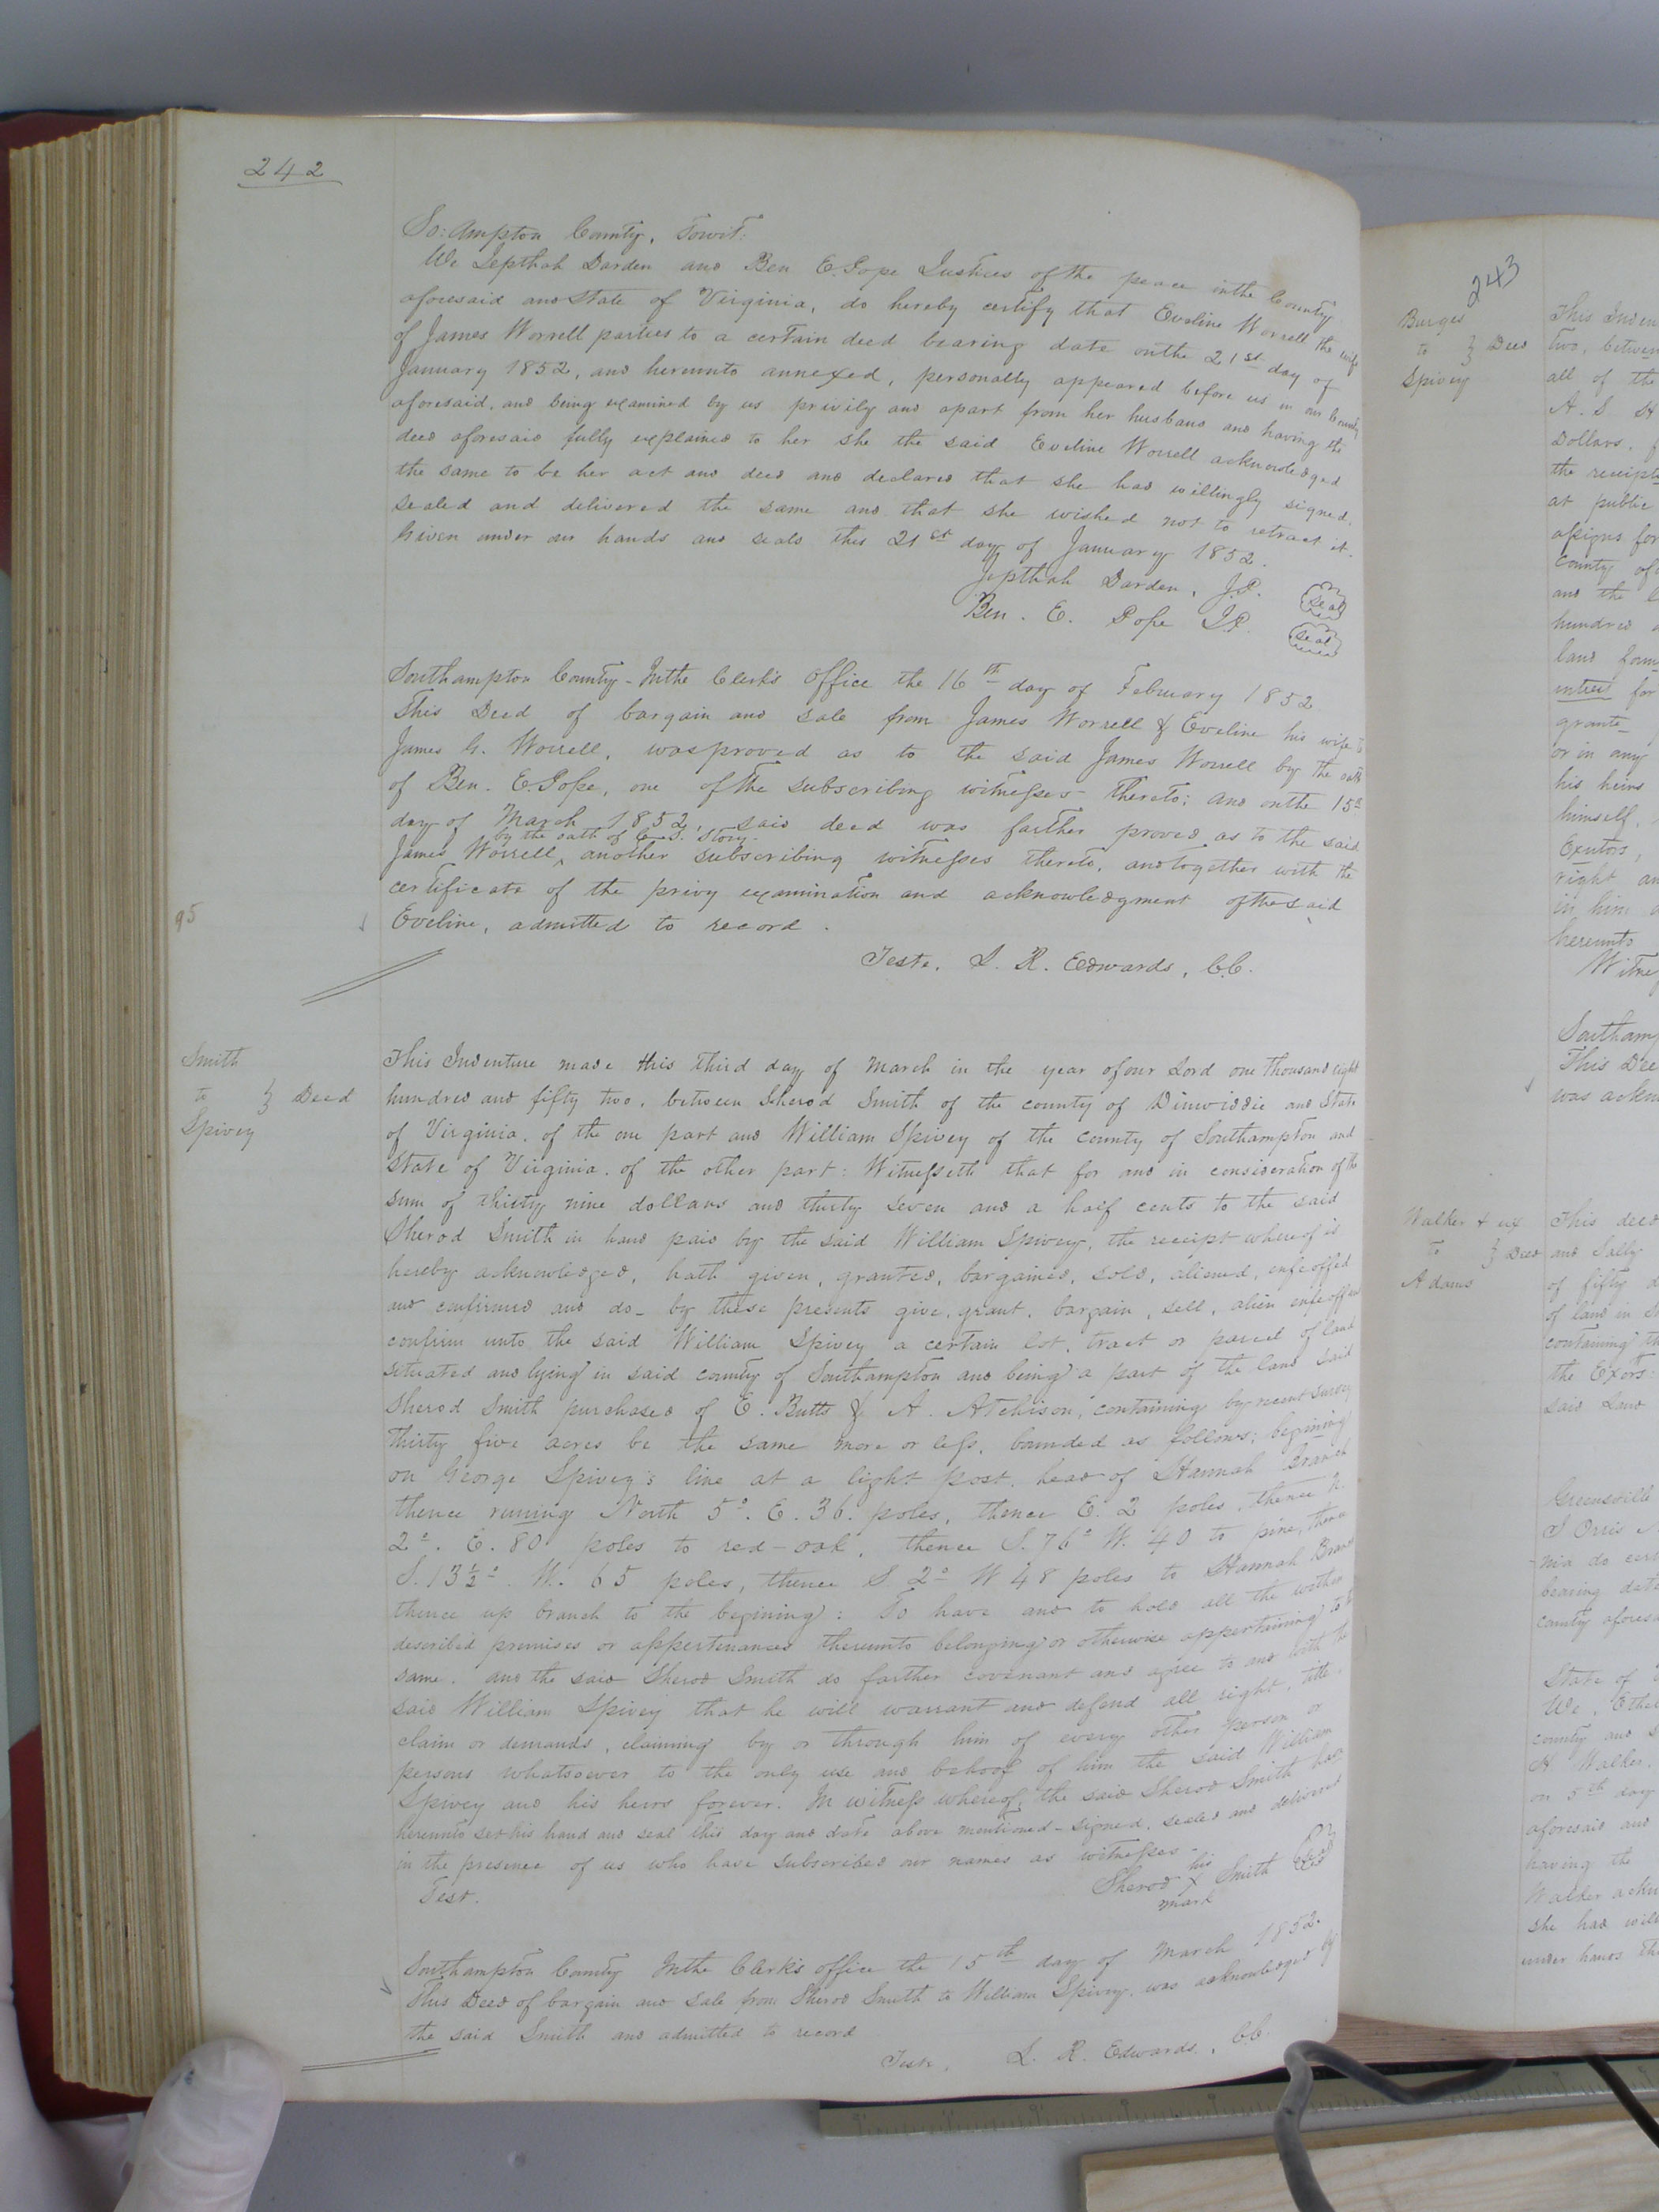 242
So: ampton County, Towit:
We Jepthah Darden and Ben E. Pope Justices of the peace in the County
aforesaid and State of Virginia, do hereby certify that Eveline Worrell the wife
of James Worrell parties to a certain deed bearing date on the 21st day of
January 1852, and hereunto annexed, personally appeared before us in our County
aforesaid, and being examined by us privily and apart from her husband and having the
deed aforesaid fully explained to her she the said Eveline Worrell acknowledged
the same to be her act and deed and declared that she had willingly signed,
sealed and delivered the same and that she wished not to retract it.
Given under our hands and seals this 21st day of January 1852.
Jepthah Darden, J.P. seal
Ben. E. Pope J.P. seal
Southampton County - In the Clerk's Office the 16th day of February 1852
This Deed of bargain and sale from James Worrell & Eveline his wife to
James G. Worrell, was proved as to the said James Worrell by the oath
of Ben. E. Pope, one of the subscribing witnesses thereto; and on the 15th
day of March 1852, said deed was farther proved as to the said
by the oath of E. S. Story
James Worrell, another subscribing witnesses thereto, and together with the
certificate of the privy examination and acknowledgment of the said
95
Eveline, admitted to record.
Teste, L. R. Edwards, C.C.
Smith
to } Deed
Spivey
This Indenture made this third day of March in the year of our Lord one thousand eight
hundred and fifty two, between Sherod Smith of the county of Dinwiddie and State
of Virginia, of the one part and William Spivey of the county of Southampton and
State of Virginia, of the other part: Witnesseth that for and in consideration of the
sum of thirty nine dollars and thirty seven and a half cents to the said
Sherod Smith in hand paid by the said William Spivey, the receipt whereof is
hereby acknowledged, hath given, granted, bargained, sold, aliened, enfeoffed
and confirmed and do - by these presents give, grant, bargain, sell, alien enfeoff and
confirm unto the said William Spivey a certain lot, tract or parcel of land
situated and lying in said county of Southampton and being a part of the land said
Sherod Smith purchased of E. Butts & A. Atchison, containing by recent survey
thirty five acres be the same more or less, bounded as follows; begining
on George Spivey's line at a light post, head of Hannah Branch
thence runing North 5°. E. 36. poles, thence E. 2 poles, thence N.
2°. E. 80 poles to red-oak, thence S. 76° W. 40 to pine, thence
S. 13½°. W. 65 poles, thence S 2° W 48 poles to Hannah Branch
thence up branch to the begining: To have and to hold all the within
described premises or appertenances thereunto belonging or otherwise appertaining to the
same. and the said Sherod Smith do farther covenant and agree to and with the
said William Spivey that he will warrant and defend all right, title,
claim or demands, claiming by or through him of every other person or
persons whatsoever to the only use and behoof of him the said William
Spivey and his heirs forever. In witness whereof, the said Sherod Smith has
hereunto set his hand and seal this day and date above mentioned - signed, sealed and delivered
in the presence of us who have subscribed our names as witnesses -
Test.
his
Sherod X Smith seal
mark
Southampton County In the Clerk's office the 15th day of March 1852.
This Deed of bargain and sale from Sherod Smith to William Spivey, was acknowledged by
the said Smith and admitted to record
Teste, L. R. Edwards, C.C.
243
Burges
to } Deed
Spivey
This Inden
two, between
all of the
Dollars,
the receipt
at public
assigns for
county of
and the
hundred
land
intrest for
grante
or in any
his heirs
himself,
Exutors,
right an
in him
hereunto
Witne
Southam
This Dee
was ackn
Walker & ux
to } Deed
Adams
This deed
and Sally
of fifty
of land in
containing
the Exors:
said Land
Greensville
nia do cert
bearing date
county afores
State of
We, Ethel
county and
H Walker,
on 5th day
aforesaid and
having the
Walker ackn
she had will
under hands